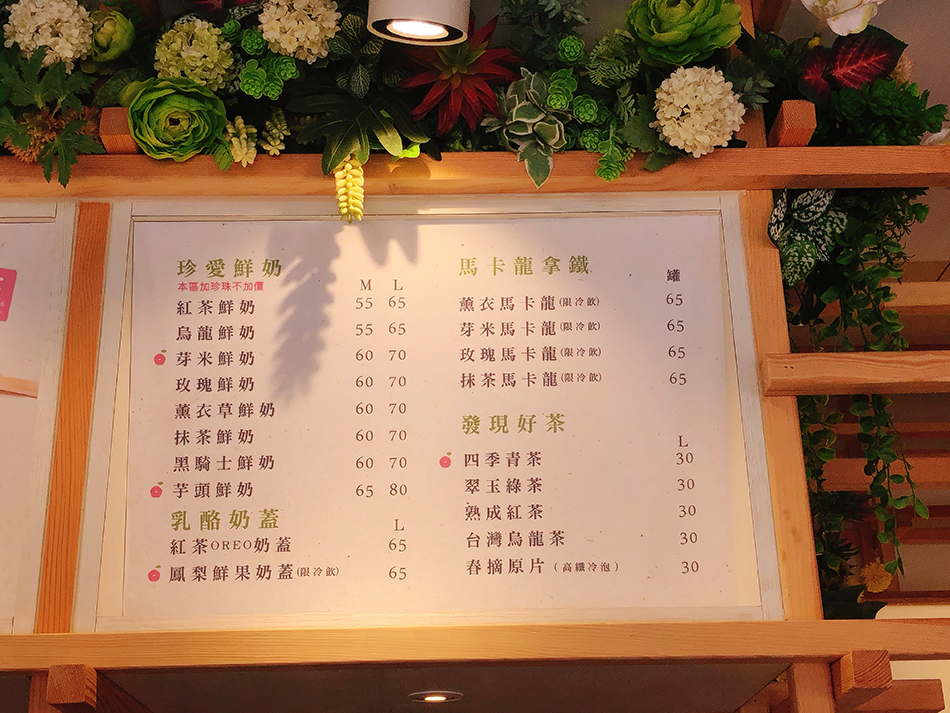 珍愛鮮奶
本區加珍珠不加價 M L
紅茶鮮奶 55 65
烏龍鮮奶 55 65
芽米鮮奶 60 70
玫瑰鮮奶 60 70
薰衣草鮮奶 60 70
抹茶鮮奶 60 70
黑騎士鮮奶 60 70
芋頭鮮奶 65 80
乳酪奶蓋 L
紅茶OREO奶蓋 65
鳳梨鮮果奶蓋(限冷飲) 65
馬卡龍拿鐵 罐
薰衣馬卡龍(限冷飲) 65
芽米馬卡龍(限冷飲) 65
玫瑰馬卡龍(限冷飲) 65
抹茶馬卡龍(限冷飲) 65
發現好茶 L
四季青茶 30
翠玉綠茶 30
熟成紅茶 30
台灣烏龍茶 30
春摘原片(高纖冷泡) 30